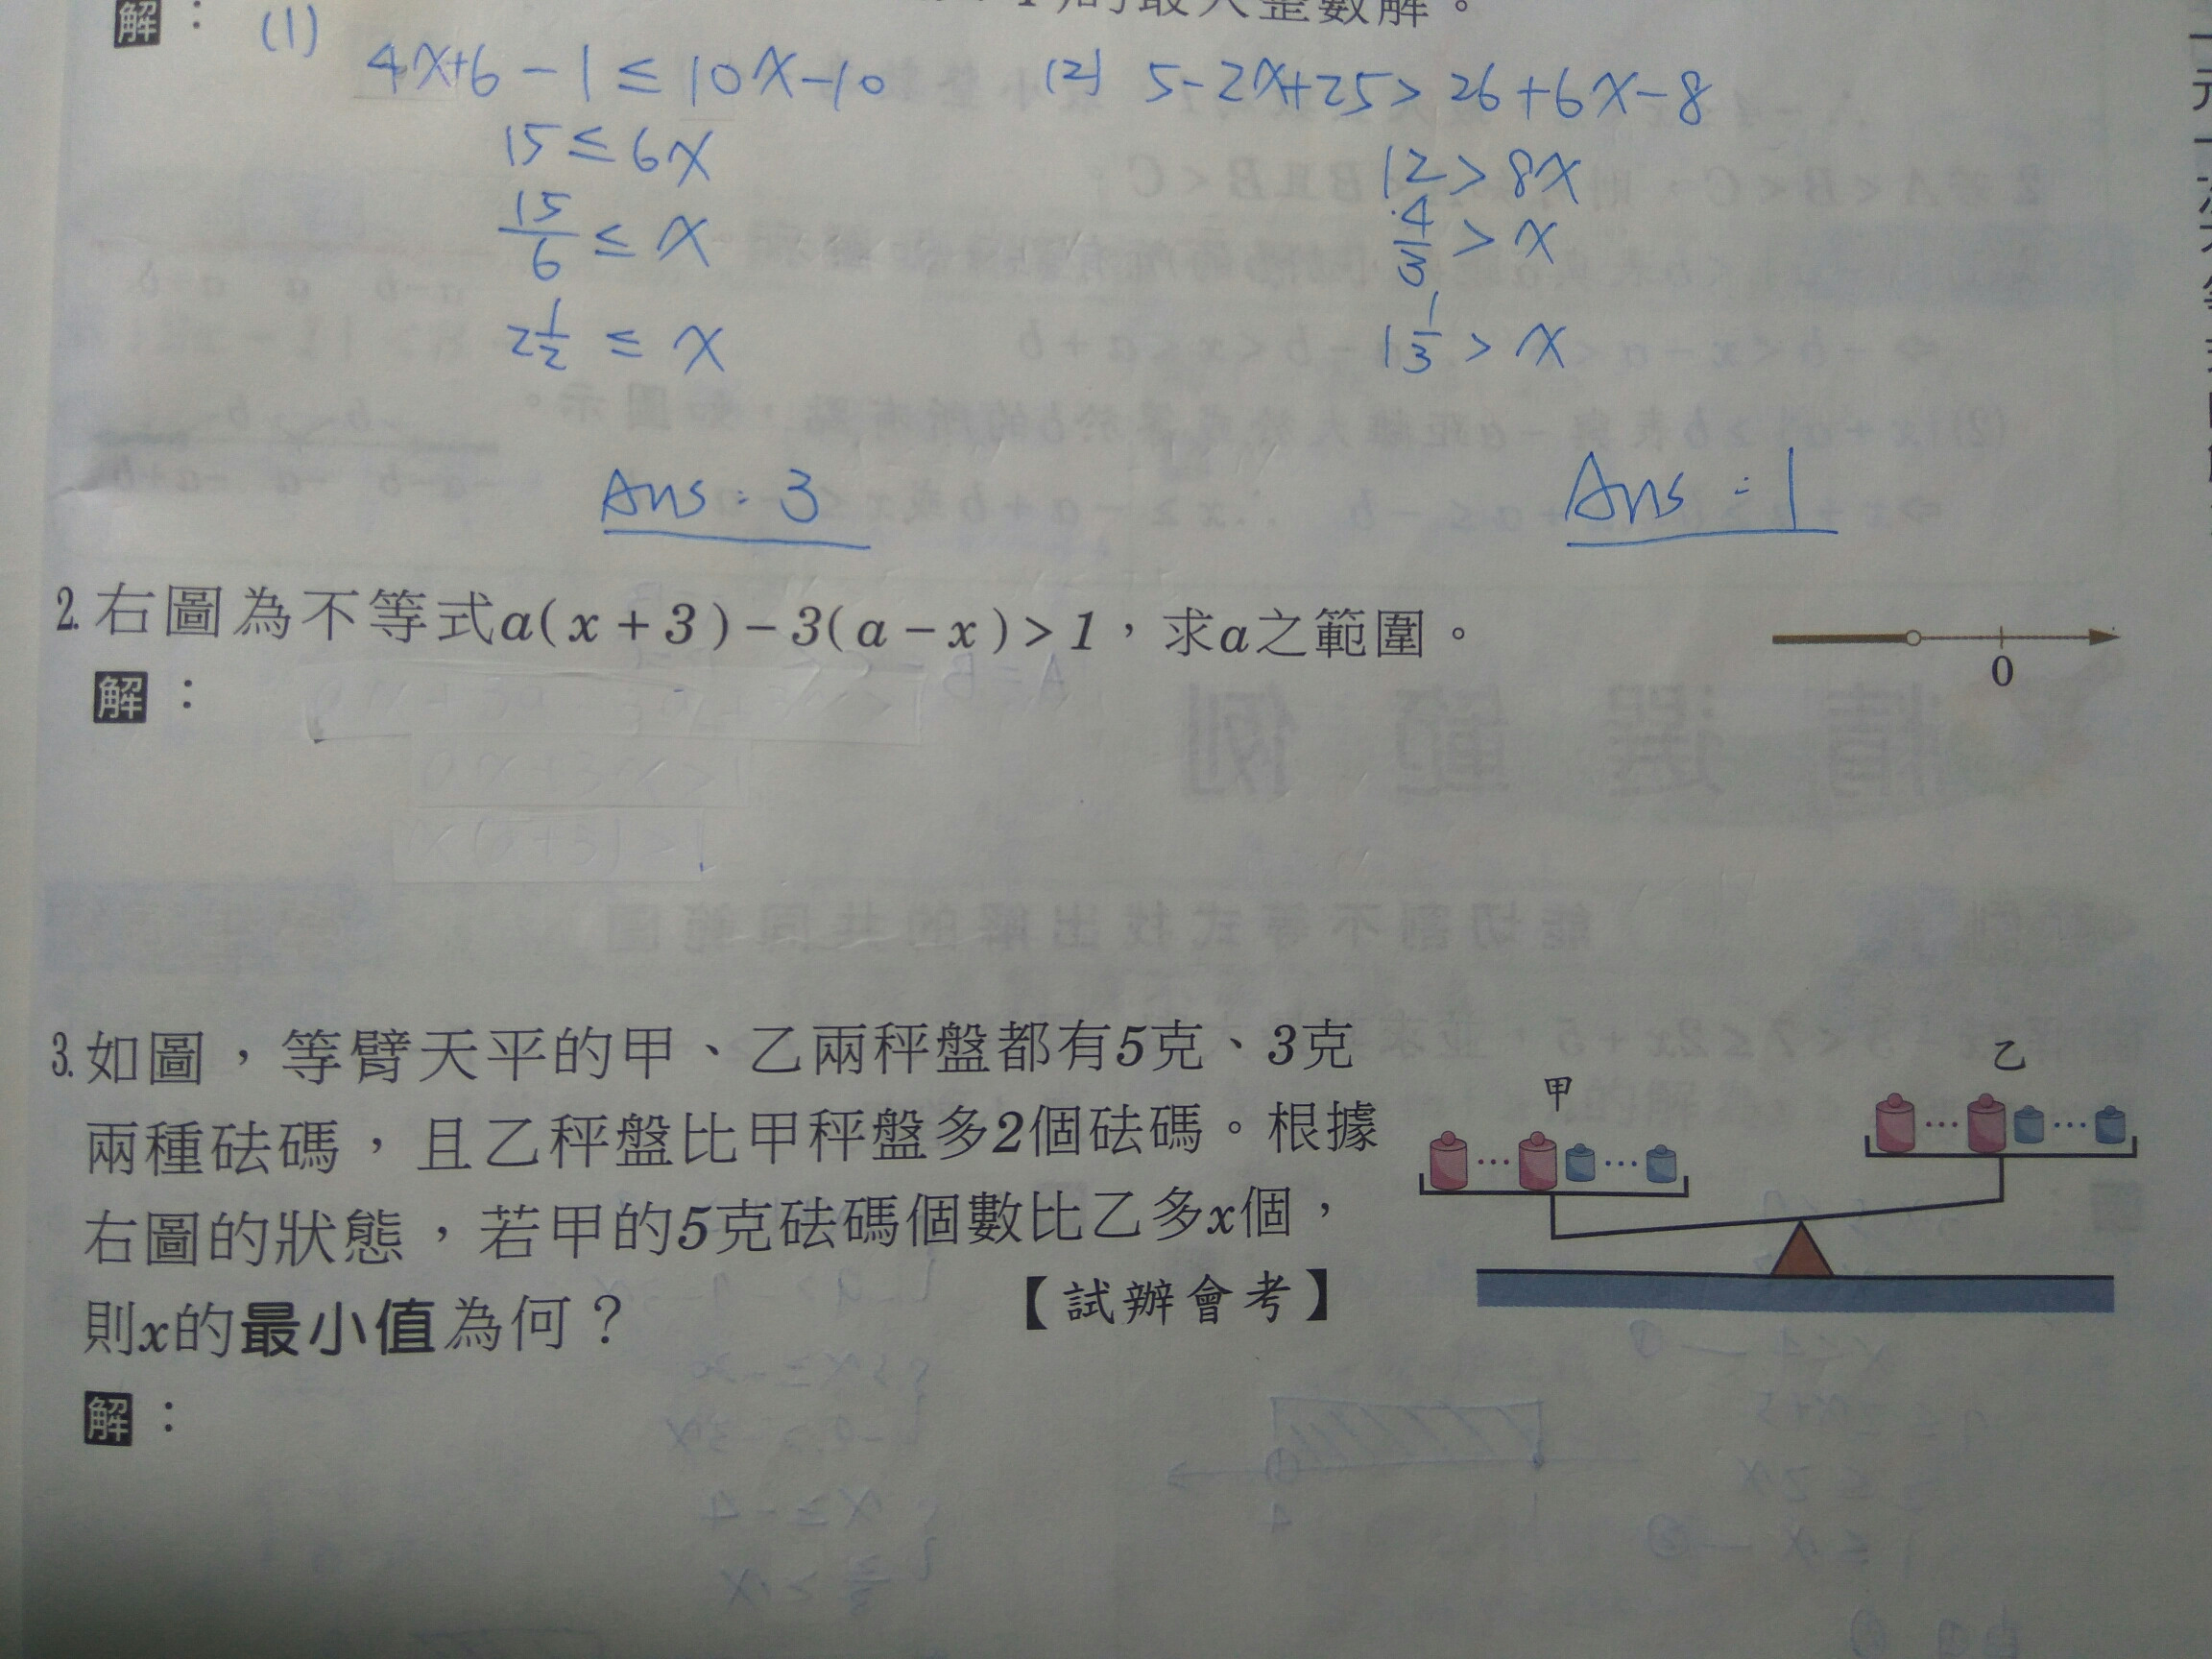 的最大整數解。
解：(1)
4x+6-1≤10x-10
15≤6x
15/6≤x
2 1/2≤x
Ans:3
(2) 5-2x+25>26+6x-8
12>8x
4/3>x
1 1/3>x
Ans:1
2.右圖為不等式a(x+3)-3(a-x)>1，求a之範圍。
0
解：
3.如圖，等臂天平的甲、乙兩秤盤都有5克、3克
兩種砝碼，且乙秤盤比甲秤盤多2個砝碼。根據
右圖的狀態，若甲的5克砝碼個數比乙多x個，
則x的最小值為何？ 【試辦會考】
甲
乙
解：